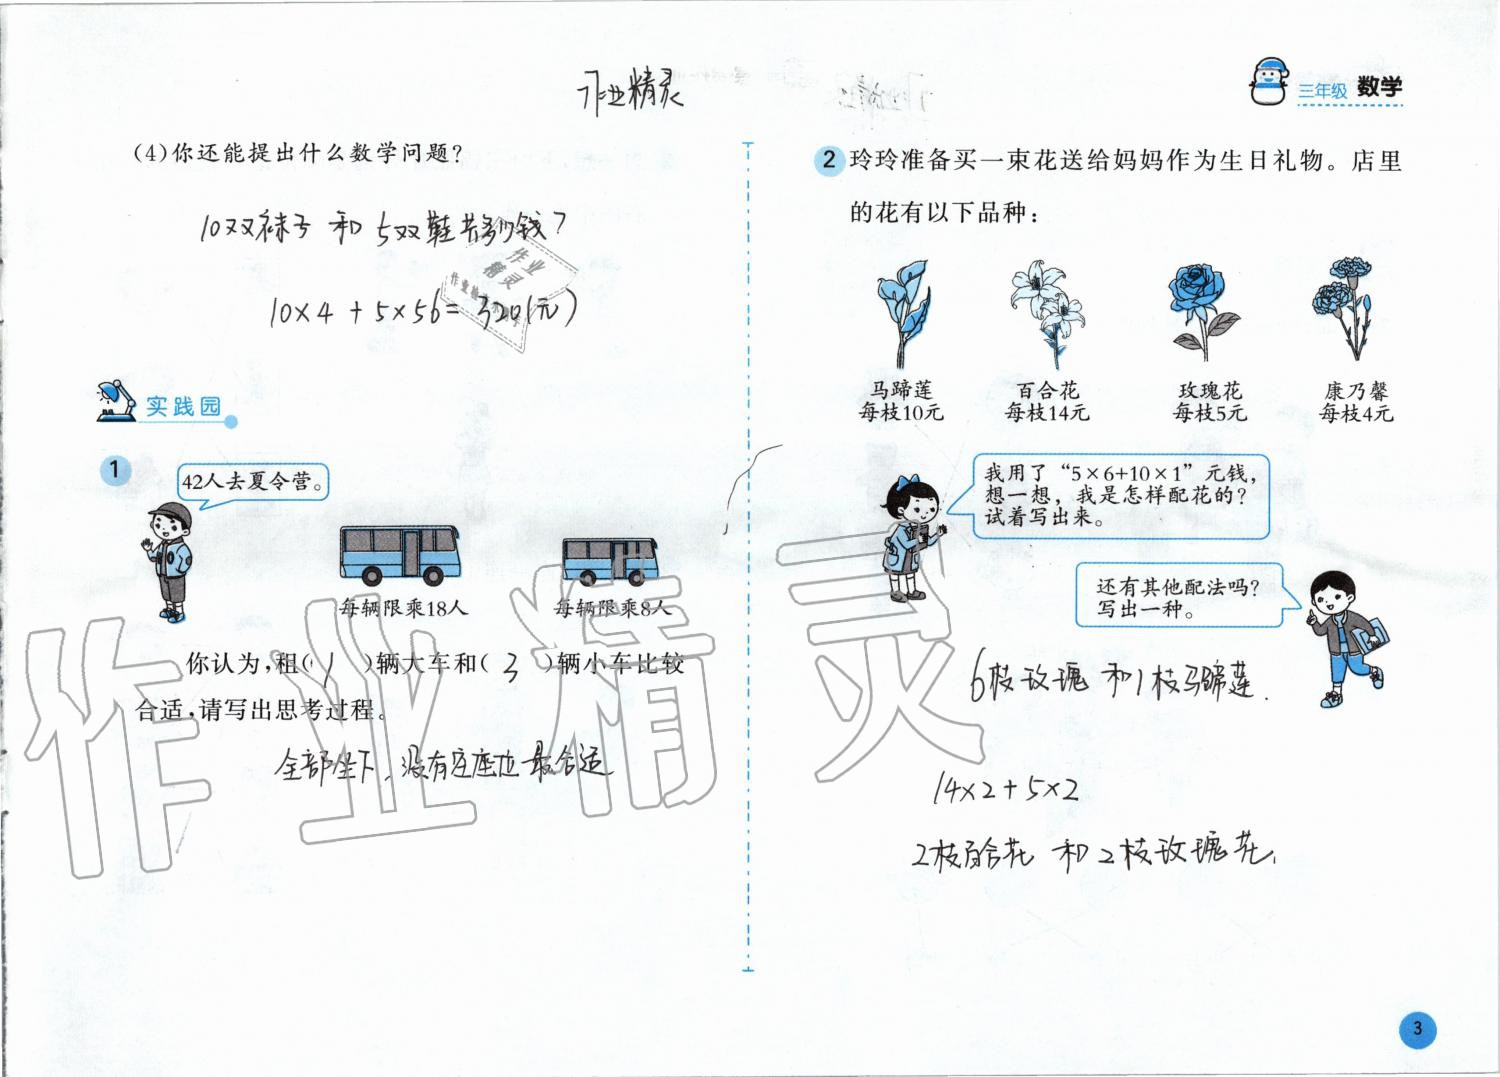 作业精灵
三年级 数学
(4)你还能提出什么数学问题?
10双袜子和5双鞋共多少钱?
10×4+5×56=320(元)
作业
精灵
实践园
1
42人去夏令营。
每辆限乘18人
每辆限乘8人
你认为,租(1)辆大车和(3)辆小车比较
合适,请写出思考过程。
全部坐下,没有空座位最合适
2 玲玲准备买一束花送给妈妈作为生日礼物。店里
的花有以下品种:
马蹄莲 百合花 玫瑰花 康乃馨
每枝10元 每枝14元 每枝5元 每枝4元
我用了“5×6+10×1”元钱,
想一想,我是怎样配花的?
试着写出来。
还有其他配法吗?
写出一种。
6枝玫瑰和1枝马蹄莲.
14×2+5×2
2枝百合花和2枝玫瑰花.
作业精灵
3